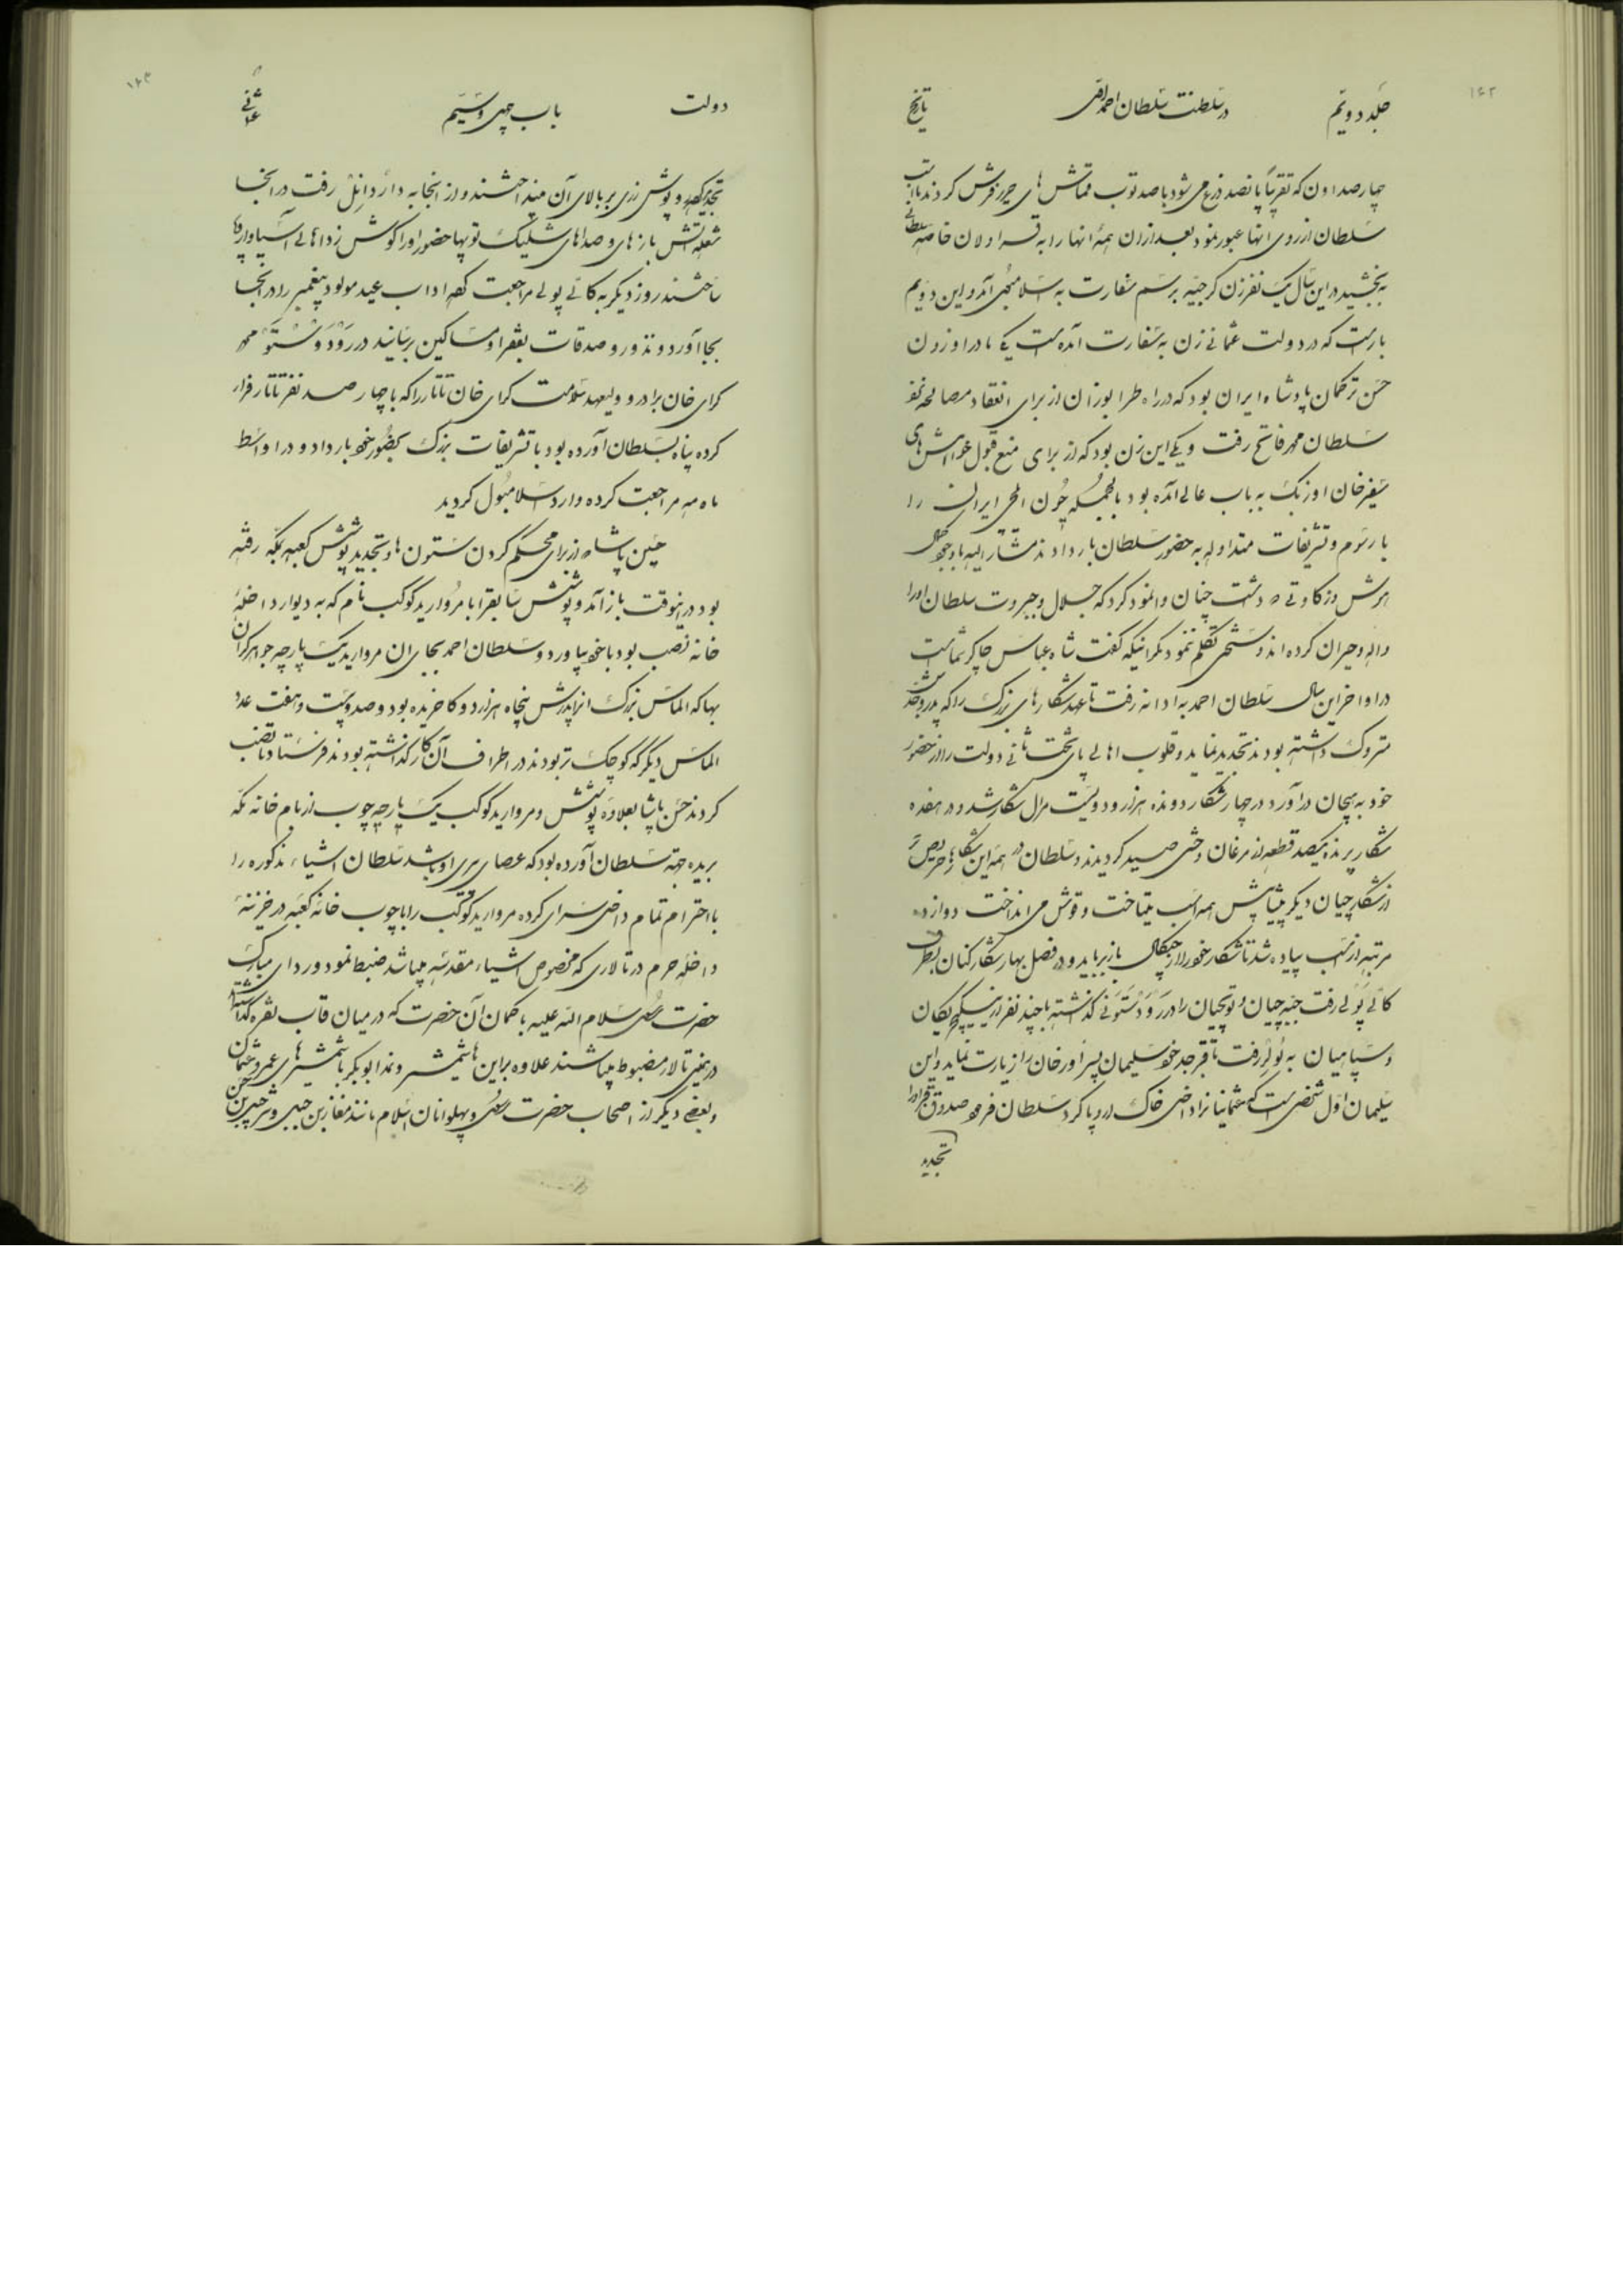 ۱۴۲
جلد دویم در سلطنت سلطان احمد اول تاریخ
چهار صد اون که تقریباً پانصد ذرع می شود با صد توپ قماش های حریر فرش کردند تا اسب
سلطان از روی انها عبور نمود بعد ازان همهٔ انها را به قراولان خاصه سلطانی
بخشید در این سال یک نفر زن گرجیه برسم سفارت به اسلامبول آمد و این دویم
بار است که در دولت عثمانی زن به سفارت آمده است یکی مادر اوزون
حسن ترکمان پادشاه ایران بود که در راه طرابوزان از برای انعقاد مصالحه نزد
سلطان محمد فاتح رفت و یکی این زن بود که از برای منع قبول خواهش های
سفیر خان اوزبک به باب عالی آمده بود بالجمله چون ایلچی ایران را
با رسوم و تشریفات متداوله به حضور سلطان بار دادند مشارالیه با وجود
هوش و ذکاوتی که داشت چنان وانمود کرد که جلال و جبروت سلطان اورا
واله و حیران کرده اند و سخنی تکلم ننمود مگر اینکه گفت شاه عباس چاکر شماست
در اواخر این سال سلطان احمد به ادرنه رفت تا عهد شکارهای بزرگ را که پدر و جدش
متروک داشته بودند تجدید نماید و قلوب اهالی پای تخت ثانی دولت را از حضور
خود به هیجان درآورد در چهار شکار دونده هزار و دویست مرال شکار شد و در هفده
شکار پرنده یکصد قطعه از مرغان وحشی صید گردیدند و سلطان در همه این شکارها حریص تر
از شکارچیان دیگر پیشاپیش همه اسب میتاخت و قوش می انداخت دوازده
مرتبه از اسب پیاده شد تا شکار خود را از چنگال باز برباید و در فصل بهار شکار کنان بطرف
کالی پولی رفت جبه چیان و توپچیان را در رودستونی گذاشته با چند نفر از ینیچریکان
و سپاهیان به بولیر رفت تا قبر جد خود سلیمان پسر اورخان را زیارت نماید و این
سلیمان اول شخصی است که عثمانیانرا داخل خاک اروپا کرد سلطان فرمود صندوق قبر اورا
تجدید
۱۴۳
دولت باب چهل و سیم عثمانی
تجدید کرده و پوش زری بر بالای آن میانداختند و از انجا به داردانل رفت در انجا
شعله آتش بازهای و صداهای شلیک توپها حضور اورا گوش زد اهالی آسیا و اروپا
ساختند روز دیگر به کالی پولی مراجعت کرد اداب عید مولود پیغمبر را در انجا
بجا آورد و نذور و صدقات بفقرا و مساکین رسانید در رودوستو محمد
گرای خان برادر و ولیعهد سلامت گرای خان تاتار را که با چهار صد نفر تاتار فرار
کرده پناه بسلطان آورده بود با تشریفات بزرگ بحضور خود بار داد و در اواسط
ماه مه مراجعت کرده وارد اسلامبول گردید
حسن پاشا که از برای محکم کردن ستون ها و تجدید پوشش کعبه بمکه رفته
بود در اینوقت باز آمد و پوشش سابق را با مروارید کوکب نام که به دیوار داخلهٔ
خانه نصب بود با خود بیاورد و سلطان احمد بجای ان مروارید یک پارچه جواهر گران
بها که الماس بزرگ انرا پدرش پنجاه هزار دوکا خریده بود و صد و بیست و هفت عدد
الماس دیگر که کوچک تر بودند در اطراف آن کار گذاشته بودند فرستاد تا نصب
کردند حسن پاشا بعلاوه پوشش و مروارید کوکب یک پارچه چوب از بام خانه مکه
بریده جهة سلطان آورده بود که عصای پیری او باشد سلطان اشیاء مذکوره را
با احترام تمام داخل سرای کرده مروارید کوکب را با چوب خانه کعبه در خزینهٔ
داخله حرم در تالاری که مخصوص اشیاء مقدسه میباشد ضبط نمود و ردای مبارک
حضرت رسول سلام الله علیه با کمان آن حضرت که در میان قاب نقره گذاشته
در همین تالار مضبوط میباشند علاوه بر این ها شمشیر و ندا ابوبکر با شمشیرهای عمر و عثمان
و بعضی دیگر از اصحاب حضرت رسول و پهلوانان اسلام مانند معاذ بن جبل و شرحبیل بن حسن